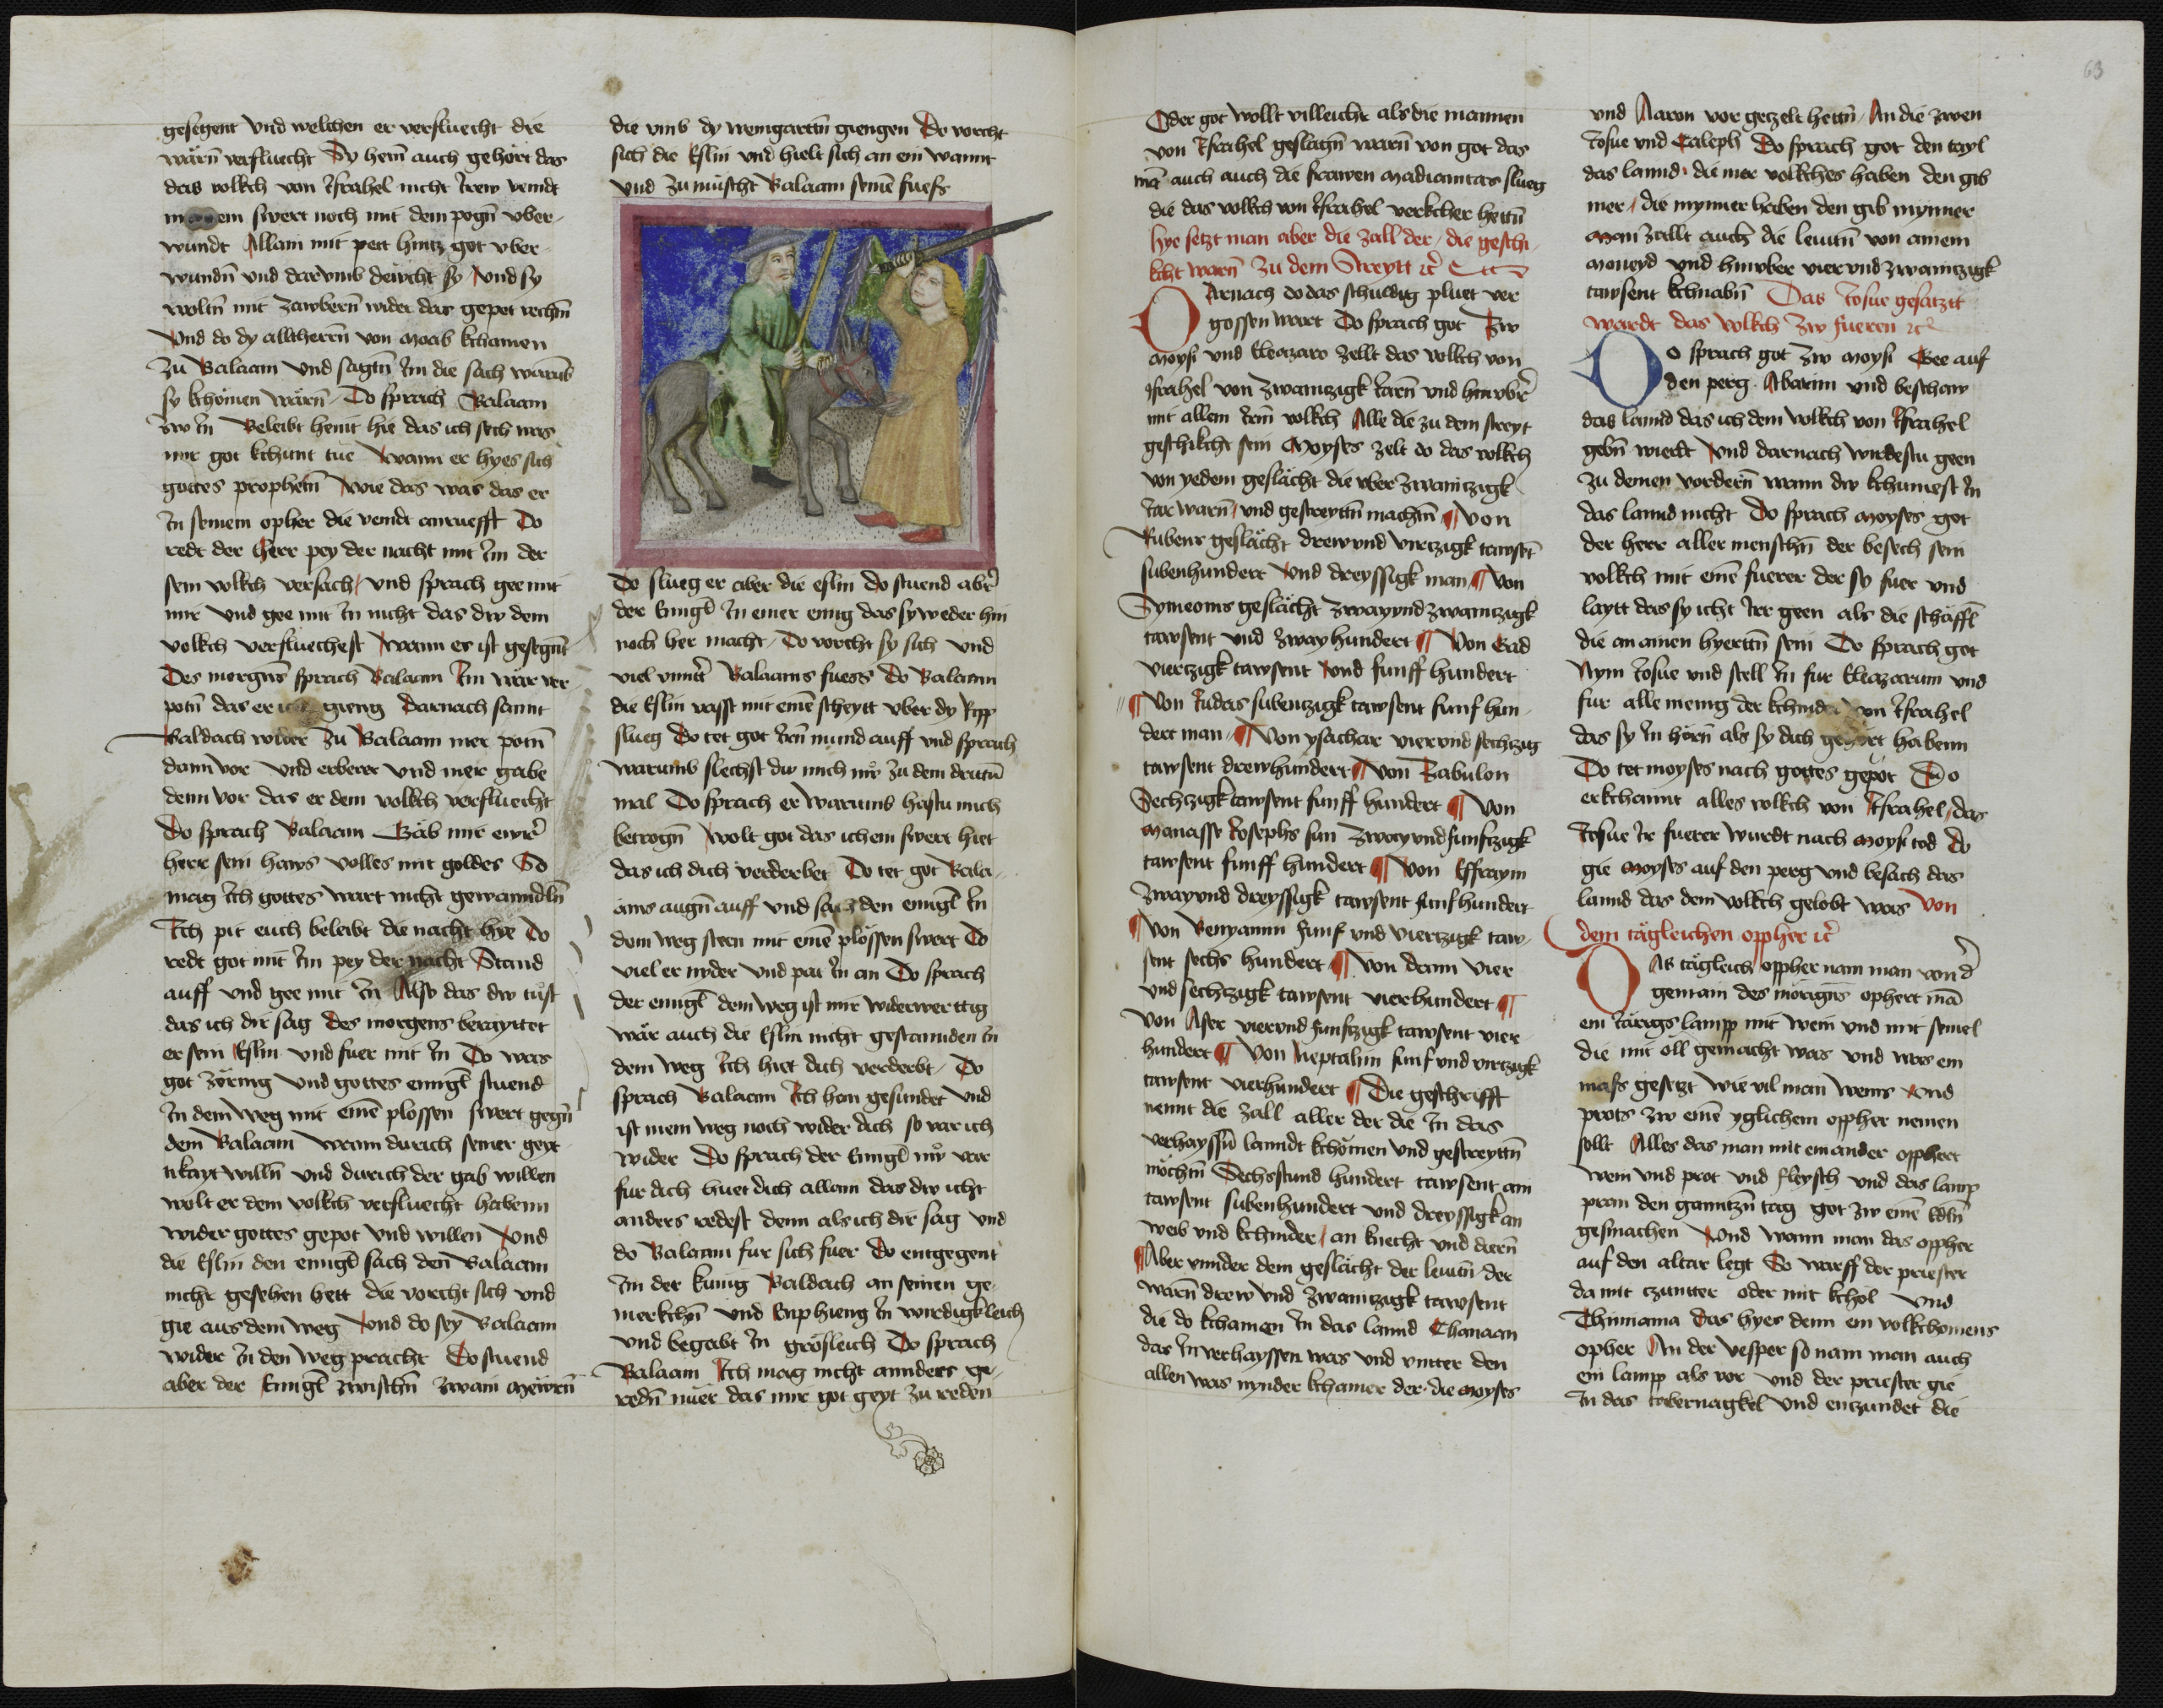 gesegent vnd welchen er verfluecht die
wärn̄ verfluecht Sy hetn̄ auch gehört das
das volkch von Israhel nicht Irew veindt
m em swert noch mit dem pogn̄ vber-
wundt Allain mit pett hintz got vber-
wundn̄ vnd darvmb deucht sy vnd sy
woltn̄ mit zawbern̄ wider das gepet vechtn̄
Vnd do dy altherrn̄ von Moab khamen
zu Balaam vnd sagtn̄ Im die sach warvmb
sy khömen wärn̄ Do sprach Balaam
zw In Beleibt heint hie das ich sech was
mir got khunt tue Wann er hyes sich
gottes prophetn̄ Wie das was das er
In seinem opher die veindt anruefft Do
redt der Herr pey der nacht mit Im der
sein volkch versach vnd sprach gee mit
mir vnd gee mit In nicht das dw dem
volkch verfluechest Wann es ist gesegn̄t
Des morgn̄s sprach Balaam Im war ver
potn̄ das er gieng Darnach sannt
Baldach wider zu Balaam mer potn̄
dann vor vnd erberer vnd mer gabe
denn vor das er dem volkch verfluecht
Do sprach Balaam Gäb mir ewr̄
herr sein haws volles mit goldes So
mag Ich gottes wart nicht gewanndln̄
Ich pit euch beleibt die nacht hye Do
redt got mit Im pey der nacht Stand
auff vnd gee mit In Also das dw tuest
das ich dir sag Des morgens beraytter
er sein Eslin vnd fuer mit In Do was
got zörnig vnd gottes enngl̄ stuend
In dem weg mit einē plossen swert gegn̄
dem Balaam wann durich seiner geyt-
tikayt willn̄ vnd durich der gab willen
wolt er dem volkch verfluecht habenn
wider gottes gepot vnd willen Vnd
die Eslin den enngl̄ sach den Balaam
nicht gesehen hett die vorcht sich vnd
gie aus dem weg Vnd do sey Balaam
wider In den weg pracht Do stuend
aber der Enngl̄ zwischn̄ zwain Mëwrn̄
die vmb dy weingarttn̄ giengen Do vorcht
sich die Eslin vnd hielt sich an ein wannt
vnd zu müscht Balaam seinē fuess
Do slueg er aber die eslin do stuend abr̄
der Enngl̄ In einer enng das sy weder hin
noch her macht Do vorcht sy sich vnd
viel vnntr̄ Balaams fuess Do Balaam
die Eslin vasst mit einē scheytt vber dy Ripp
slueg Do tet got Irn̄ mund auff vnd sprach
warumb slechst dw mich nw̄ zu dem drittn̄
mal Do sprach er Warumb hastu mich
betrogn̄ Wolt got das ich ein swert hiet
das ich dich verderbet Do tet got Bala-
ams augn̄ auff vnd sach den enngl̄ In
dem weg steen mit einē plössen swert Do
viel er nyder vnd pat In an Do sprach
der enngl̄ dem weg ist mir widerwerttig
wär auch die Eslin nicht gestannden In
dem weg Ich hiet dich verderbt Do
sprach Balaam Ich han gesundet vnd
ist mein weg noch wider dich so var ich
wider Do sprach der Enngl̄ nw̄ var
fur dich huet dich allain das dw icht
anders redest denn als ich dir sag vnd
do Balaam fur sich fuer Do entgegent
Im der kunig Baldach an seinen ge-
merkchn̄ vnd Enphieng In wirdigkleich
vnd begabt In grösleich Do sprach
Balaam Ich mag nicht annders ge-
redn̄ nuer das mir got geyt zu reden
63
Oder got wollt villeicht als die mannen
von Israhel geslagn̄ warn̄ von got das
mā auch auch die frawen madianitas slueg
die das volkch von Israhel verkcher hettn̄
hye setzt man aber die zall der die geschi-
kcht warn̄ zu dem Streytt ꝛc̄ Etc
Darnach do das schuldig pluet ver
gossen wart Do sprach got Zw
Moysi vnd Eleazaro Zellt das volkch von
Israhel von zwaintzigk Iarn̄ vnd hinvbr̄
mit allem Irm̄ volkch Alle die zu dem streyt
geschikcht sein Moyses zelt do das volkch
von yedem geslächt die vber zwaintzigk
Iar warn̄ vnd gestreyttn̄ machtn̄ ¶ Von
Rubens geslächt drew vnd virtzigk tawsēt
subenhundert vnd dreyssigk man ¶ Von
Symeons geslächt zway vnd zwaintzigk
tawsent vnd zway hundert ¶ Von Gad
viertzigk tawsent vnd funff hundert
¶ Von Iudas subentzigk tawsent funf hun-
dert man ¶ Von ysachar vier vnd sechtzig
tawsent drewhundert ¶ Von Zabulon
Sechtzigk tawsent funff hundert ¶ Von
Manasse Iosephs sun zway vnd funftzigk
tawsent funff hundert ¶ Von Effraym
zway vnd dreyssigk tawsent funf hundert
¶ Von Benyamin funf vnd viertzigk taw-
sent sechs hundert ¶ Von dann vier
vnd sechtzigk tawsent vierhundert ¶
Von Aser vier vnd funftzigk tawsent vier
hundert ¶ Von Neptalim funf vnd virtzigk
tawsent vierhundert ¶ Die geschrifft
nennt die zall aller der die In das
verhayssn̄ lanndt khömen vnd gestreyttn̄
möchtn̄ Sechstund hundert tawsent am
tawsent subenhundert vnd dreyssigk an
weib vnd kchinder an knecht vnd diern̄
¶ Aber vnnder dem geslächt der leuitn̄ der
warn̄ drew vnd zwaintzigk tawsent
die do kchamen In das lannd Chanaan
das In verhayssen was vnd vntter den
allen was nynder kchainer der die Moyses
vnd Aaron vor getzelt hettn̄ An die zwen
Iosue vnd Caleph Do sprach got den tayl
das lannd die mer volkches haben den gib
mer die mynner haben den gib mynner
Man zallt auch die leuitn̄ von ainem
moneyd vnd hinvber vier vnd zwaintzigk
tawsent kchnabn̄ Das Iosue gesatzt
wardt das volkch zw fueren ꝛc̄
Do sprach got zw Moysi Gee auf
den perg Abarim vnd beschaw
das lannd das ich dem volkch von Israhel
gebn̄ wierdt vnd darnach wirdestu geen
zu deinen vordern̄ wann dw kchumest In
das lannd nicht Do sprach Moyses got
der herr aller menschn̄ der besech sein
volkch mit einē fuerer der sy fuer vnd
laytt das sy icht Irr geen als die schäffl̄
die an ainen hyerttn̄ sein Do sprach got
Nym Iosue vnd stell In fur Eleazarum vnd
fur alle menig der kchinder von Israhel
das sy In hörn̄ als sy dich gehört habenn
Do tet Moyses nach gottes gepot Do
erkchannt alles volkch von Israhel das
Iosue Ir fuerer wurdt nach Moysi tod do
gie Moyses auf den perg vnd besach das
lannd das dem volkch gelobt was Von
dem tägleichen oppher ꝛc̄
Das tägleich oppher nam man von d̄
gemain des morigns ophert mā
ein Iärigs lampp mit wein vnd mit semel
die mit öll gemacht was vnd was ein
mass gesetzt wie vil man weins vnd
prots zw einē yglichem oppher nemen
sollt Alles das man mit einander oppfert
wein vnd prot vnd fleysch vnd das lamp
pran den ganntzn̄ tag got zw einē edln̄
gesmachen Vnd wann man das oppher
auf den altar legt Do warff der priester
da mit tzuntter oder mit kchol vnd
Thimiama Das hyes denn ein volkchomens
opher An der vesper so nam man auch
ein lampp als vor vnd der priester gie
In das tabernagkel vnd entzundet die